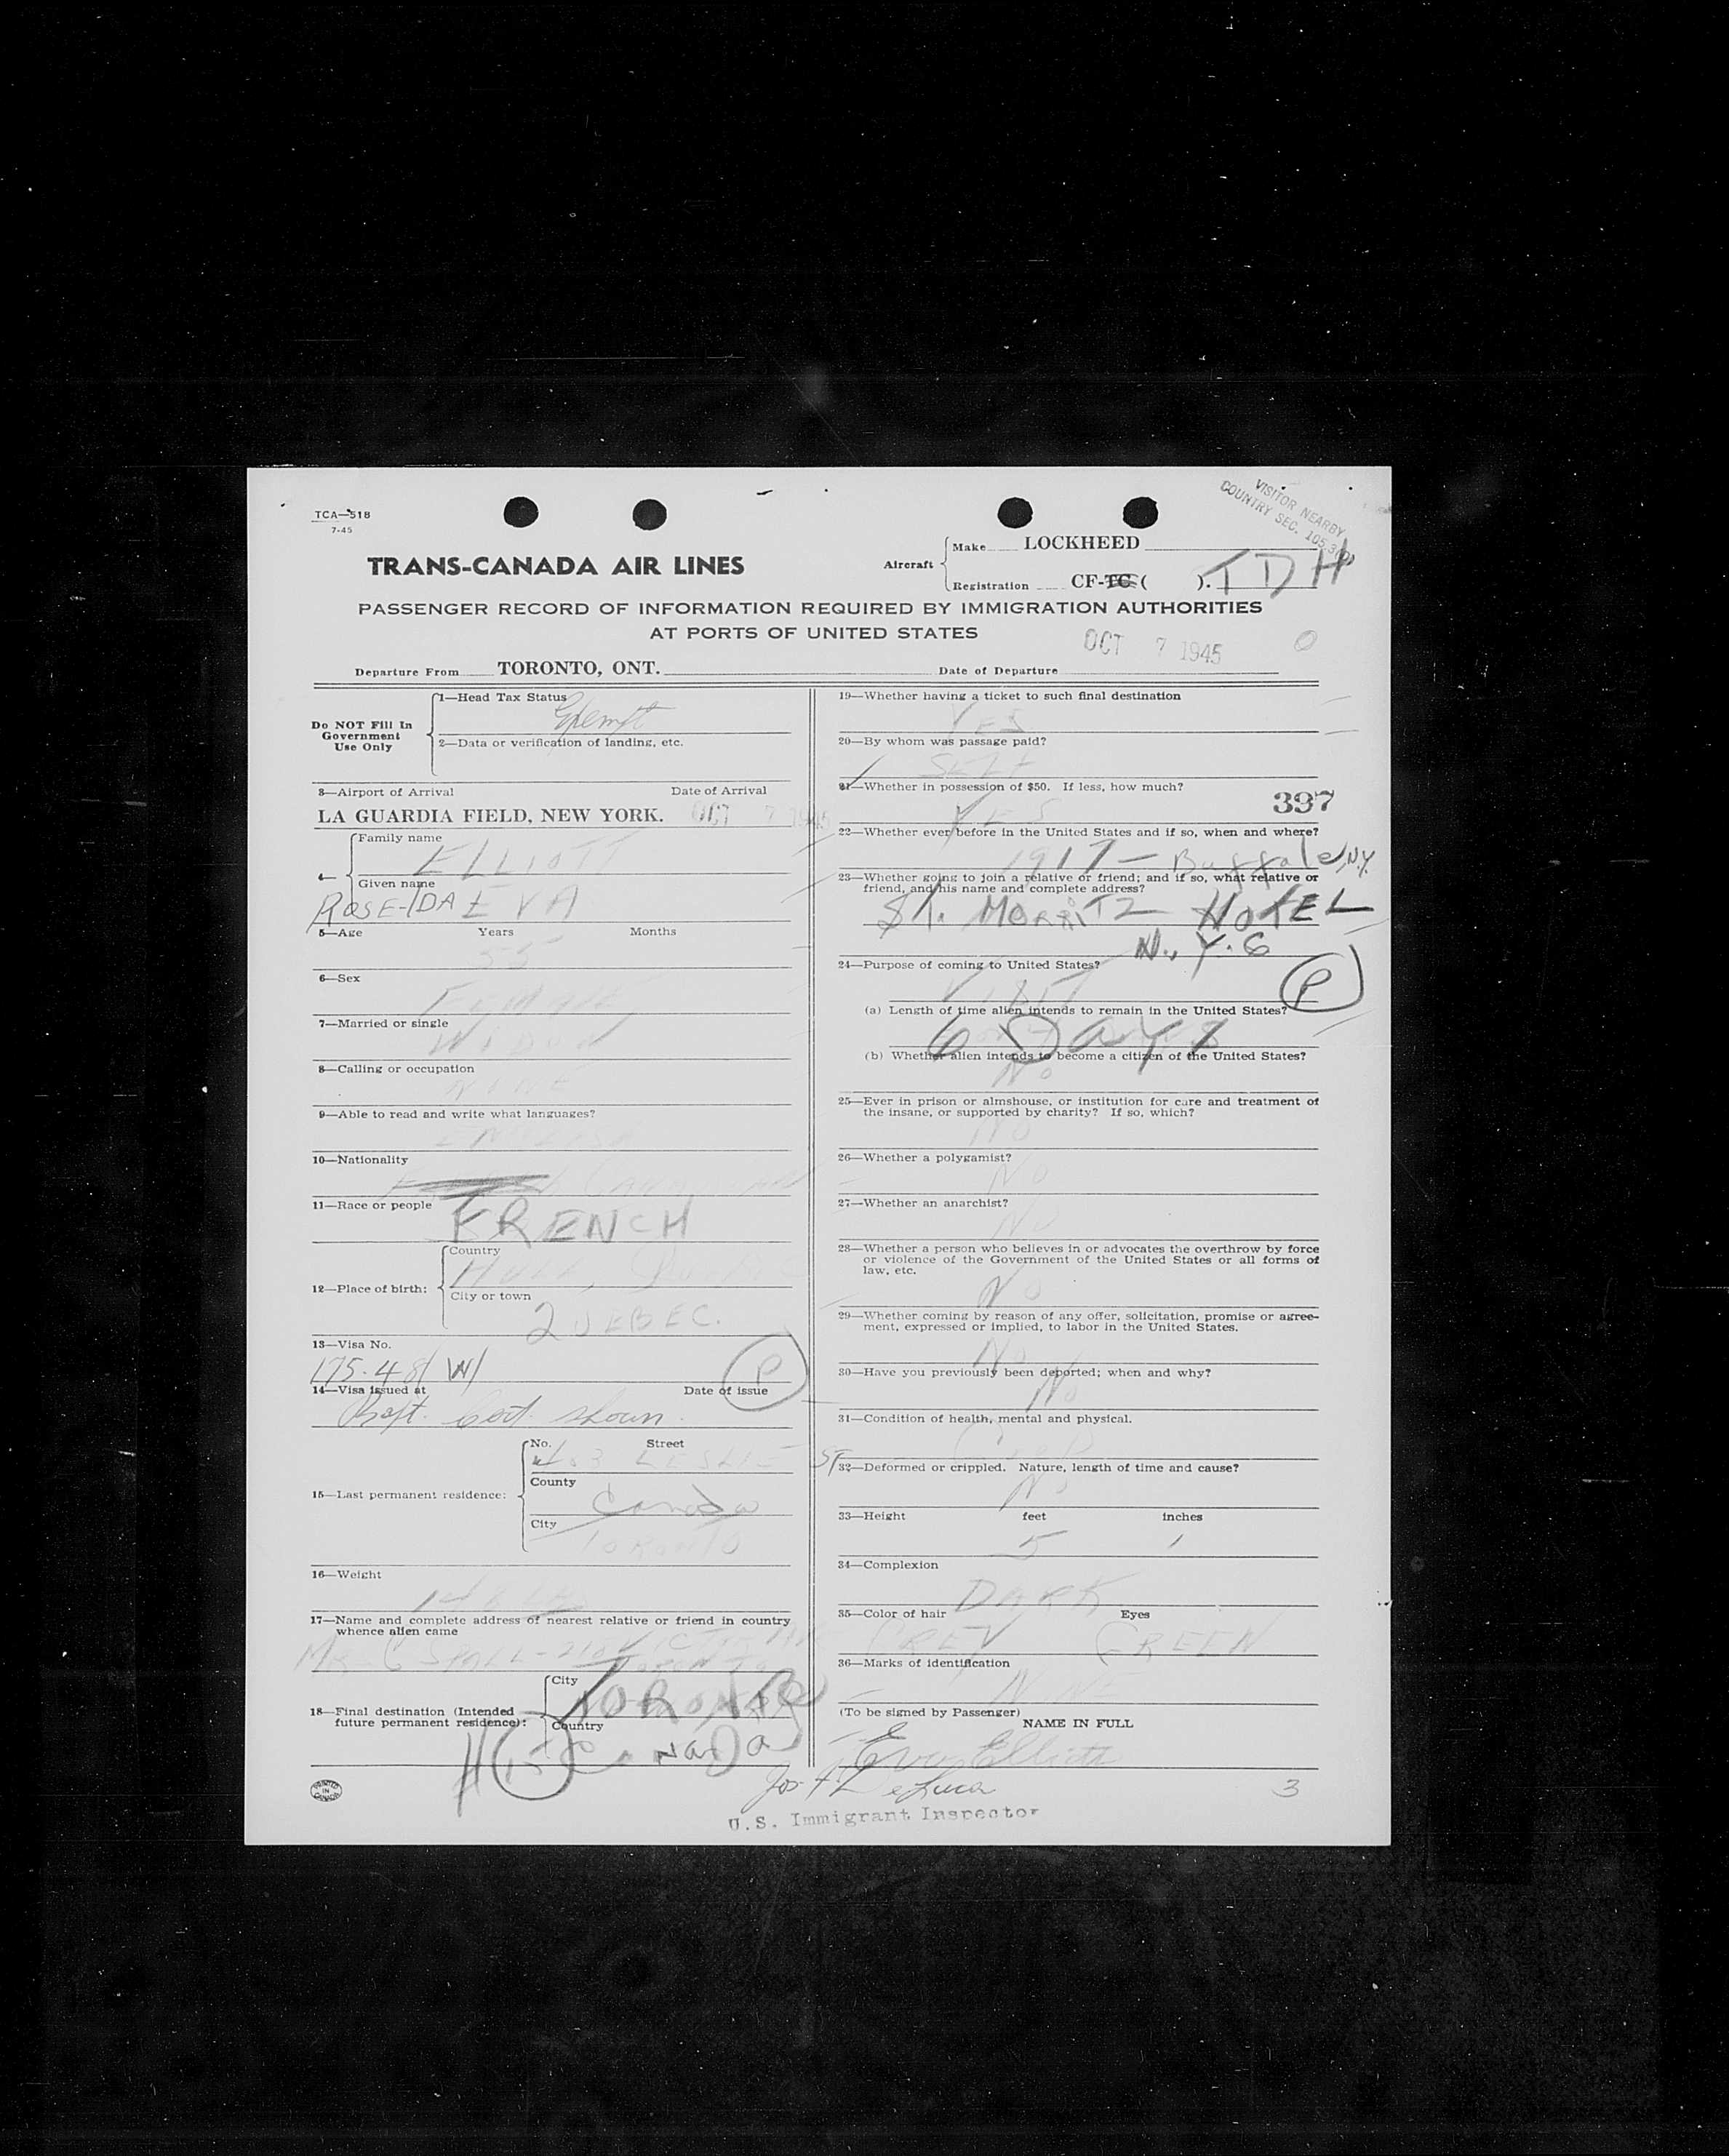 TCA—518
7-45
VISITOR NEARBY
COUNTRY SEC. 105.3(
TRANS-CANADA AIR LINES
Aircraft
Make LOCKHEED
Registration CF-TC ( ). TDH
PASSENGER RECORD OF INFORMATION REQUIRED BY IMMIGRATION AUTHORITIES
AT PORTS OF UNITED STATES
OCT 7 1945
Departure From TORONTO, ONT. Date of Departure
Do NOT Fill In
Government
Use Only
1—Head Tax Status
Exempt
2—Data or verification of landing, etc.
3—Airport of Arrival Date of Arrival
LA GUARDIA FIELD, NEW YORK. OCT 7 1945
4—
Family name
ELLIOTT
Given name
ROSE-IDA EVA
5—Age Years Months
55
6—Sex
FEMALE
7—Married or single
WIDOW
8—Calling or occupation
NONE
9—Able to read and write what languages?
ENGLISH
10—Nationality
CANADIAN
11—Race or people
FRENCH
12—Place of birth:
Country
HULL,
City or town
QUEBEC.
13—Visa No.
175.48/ W/
P
14—Visa issued at Date of issue
Bapt. Cert. shown.
15—Last permanent residence:
No. Street
403 LESLIE ST
County
Canada
City
TORONTO
16—Weight
17—Name and complete address of nearest relative or friend in country
whence alien came
SPALL
TORONTO
18—Final destination (Intended
future permanent residence):
City
TORONTO
Country
Canada
PRINTED
IN
CANADA
19—Whether having a ticket to such final destination
YES
20—By whom was passage paid?
SELF
21—Whether in possession of $50. If less, how much?
YES
397
22—Whether ever before in the United States and if so, when and where?
1917 — Buffalo, N.Y.
23—Whether going to join a relative or friend; and if so, what relative or
friend, and his name and complete address?
St. MORITZ HOTEL
N.Y.C
24—Purpose of coming to United States?
VISIT
P
(a) Length of time alien intends to remain in the United States?
6 Days
(b) Whether alien intends to become a citizen of the United States?
No
25—Ever in prison or almshouse, or institution for care and treatment of
the insane, or supported by charity? If so, which?
No
26—Whether a polygamist?
No
27—Whether an anarchist?
NO
28—Whether a person who believes in or advocates the overthrow by force
or violence of the Government of the United States or all forms of
law, etc.
No
29—Whether coming by reason of any offer, solicitation, promise or agree-
ment, expressed or implied, to labor in the United States.
No
30—Have you previously been deported; when and why?
No
31—Condition of health, mental and physical.
32—Deformed or crippled. Nature, length of time and cause?
No
33—Height feet inches
5 1
34—Complexion
DARK
35—Color of hair Eyes
GREY GREEN
36—Marks of identification
NONE
(To be signed by Passenger)
NAME IN FULL
Eva Elliott
3
U.S. Immigrant Inspector